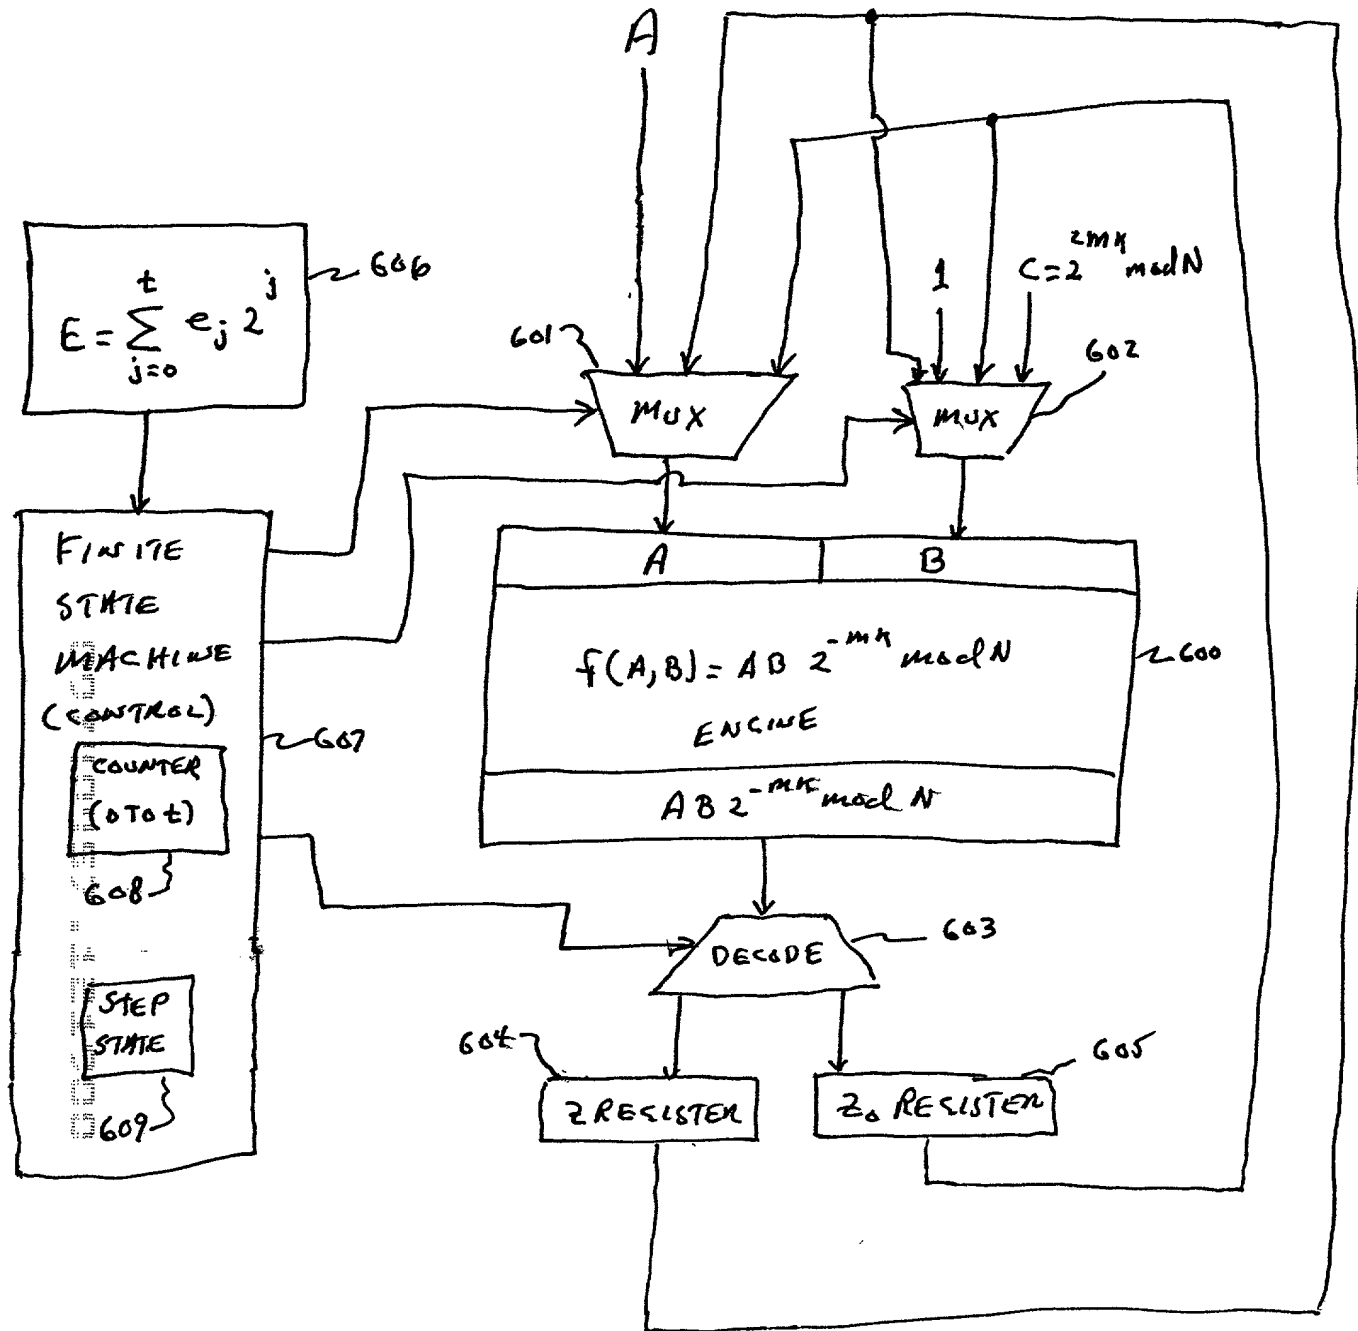 A
E = \sum_{j=0}^{t} e_j 2^j
606
1
C = 2^{2mk} mod N
601
602
MUX
MUX
FINITE
STATE
MACHINE
(CONTROL)
607
COUNTER
(0 TO t)
608
STEP
STATE
609
A
B
f(A,B) = AB 2^{-mk} mod N
ENGINE
600
AB 2^{-mk} mod N
DECODE
603
604
Z REGISTER
605
Z_0 REGISTER